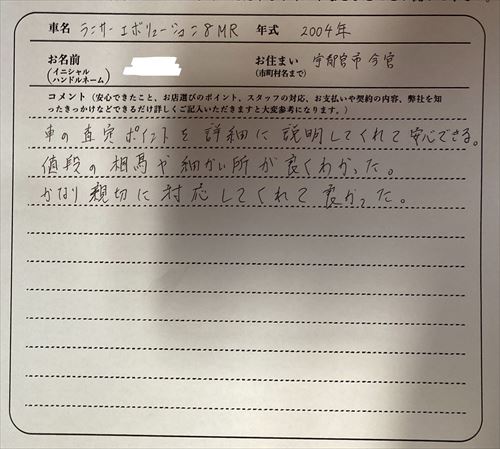 車名 ランサーエボリューション8MR 年式 2004年
お名前 お住まい 宇都宮市 今宮
(イニシャル (市町村名まで)
ハンドルネーム)
コメント(安心できたこと、お店選びのポイント、スタッフの対応、お支払いや契約の内容、弊社を知
ったきっかけなどできるだけ詳しくご記入いただきますと大変参考になります。)
車の査定ポイントを詳細に説明してくれて安心できる。
値段の相場や細かい所が良くわかった。
かなり親切に対応してくれて良かった。